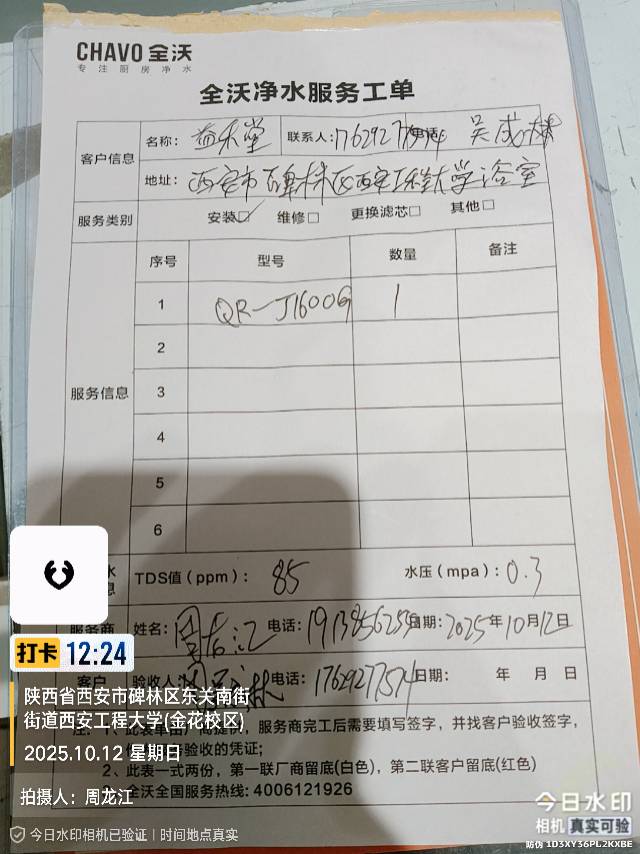 CHAVO 全沃
专注厨房净水
全沃净水服务工单
客户信息
名称: 益禾堂 联系人: 17629277574 电话: 吴成林
地址: 西安市碑林区西安工程大学浴室
服务类别 安装☑ 维修□ 更换滤芯□ 其他□
服务信息
序号 型号 数量 备注
1 QR-J1600G 1
2
3
4
5
6
TDS值(ppm): 85 水压(mpa): 0.3
服务商 姓名: 周龙江 电话: 日期: 2025年10月12日
客户 验收人: 电话: 17629277574 日期: 年 月 日
注: 1、此表单由厂商提供,服务商完工后需要填写签字,并找客户验收签字,
验收的凭证;
2、此表一式两份,第一联厂商留底(白色),第二联客户留底(红色)
全沃全国服务热线: 4006121926
打卡 12:24
陕西省西安市碑林区东关南街
街道西安工程大学(金花校区)
2025.10.12 星期日
拍摄人: 周龙江
今日水印相机已验证 | 时间地点真实
今日水印
相机 真实可验
防伪 1D3XY36PL2KXBE